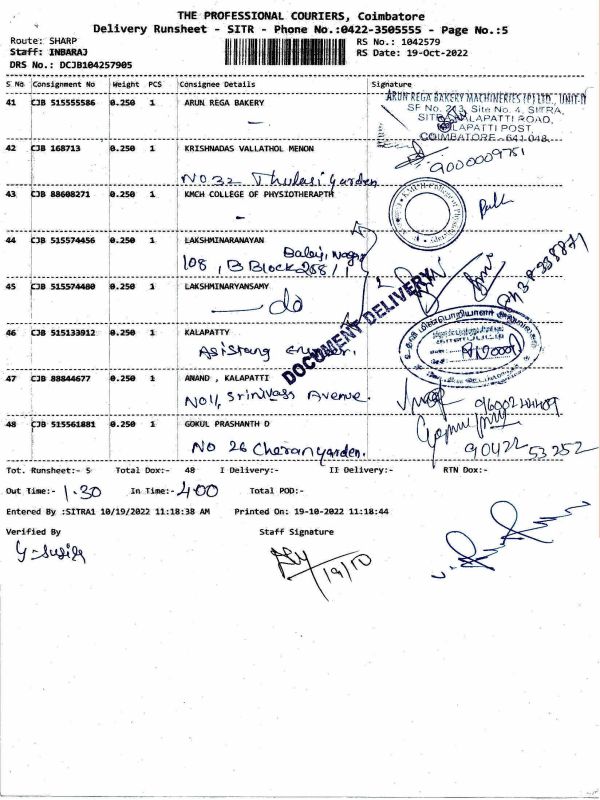 THE PROFESSIONAL COURIERS, Coimbatore
Delivery Runsheet - SITR - Phone No.:0422-3505555 - Page No.:5
Route: SHARP
RS No.: 1042579
Staff: INBARAJ
RS Date: 19-Oct-2022
DRS No.: DCJB104257905
S No Consignment No Weight PCS Consignee Details Signature
41 CJB 515555586 0.250 1 ARUN REGA BAKERY
ARUN REGA BAKERY MACHINERIES (P) LTD., UNIT-II
SF No. 213, Site No. 4, SITRA,
KALAPATTI ROAD,
KALAPATTI POST,
COIMBATORE - 641 048.
42 CJB 168713 0.250 1 KRISHNADAS VALLATHOL MENON
9000009751
No 32 Thulasi garden
43 CJB 88608271 0.250 1 KMCH COLLEGE OF PHYSIOTHERAPTH
44 CJB 515574456 0.250 1 LAKSHMINARANAYAN
108, B Block 258/1 Balaji Nagar
45 CJB 515574480 0.250 1 LAKSHMINARYANSAMY
do
DOCUMENT DELIVERY
46 CJB 515133912 0.250 1 KALAPATTY
47 CJB 88844677 0.250 1 ANAND , KALAPATTI
No 11, Srinivass Avenue.
48 CJB 515561881 0.250 1 GOKUL PRASHANTH D
No 26 Cheran garden.
90422 53252
Tot. Runsheet:- 5 Total Dox:- 48 I Delivery:- II Delivery:- RTN Dox:-
Out Time:- 1.30 In Time:- 4.00 Total POD:-
Entered By :SITRA1 10/19/2022 11:18:38 AM Printed On: 19-10-2022 11:18:44
Verified By Staff Signature
19/10